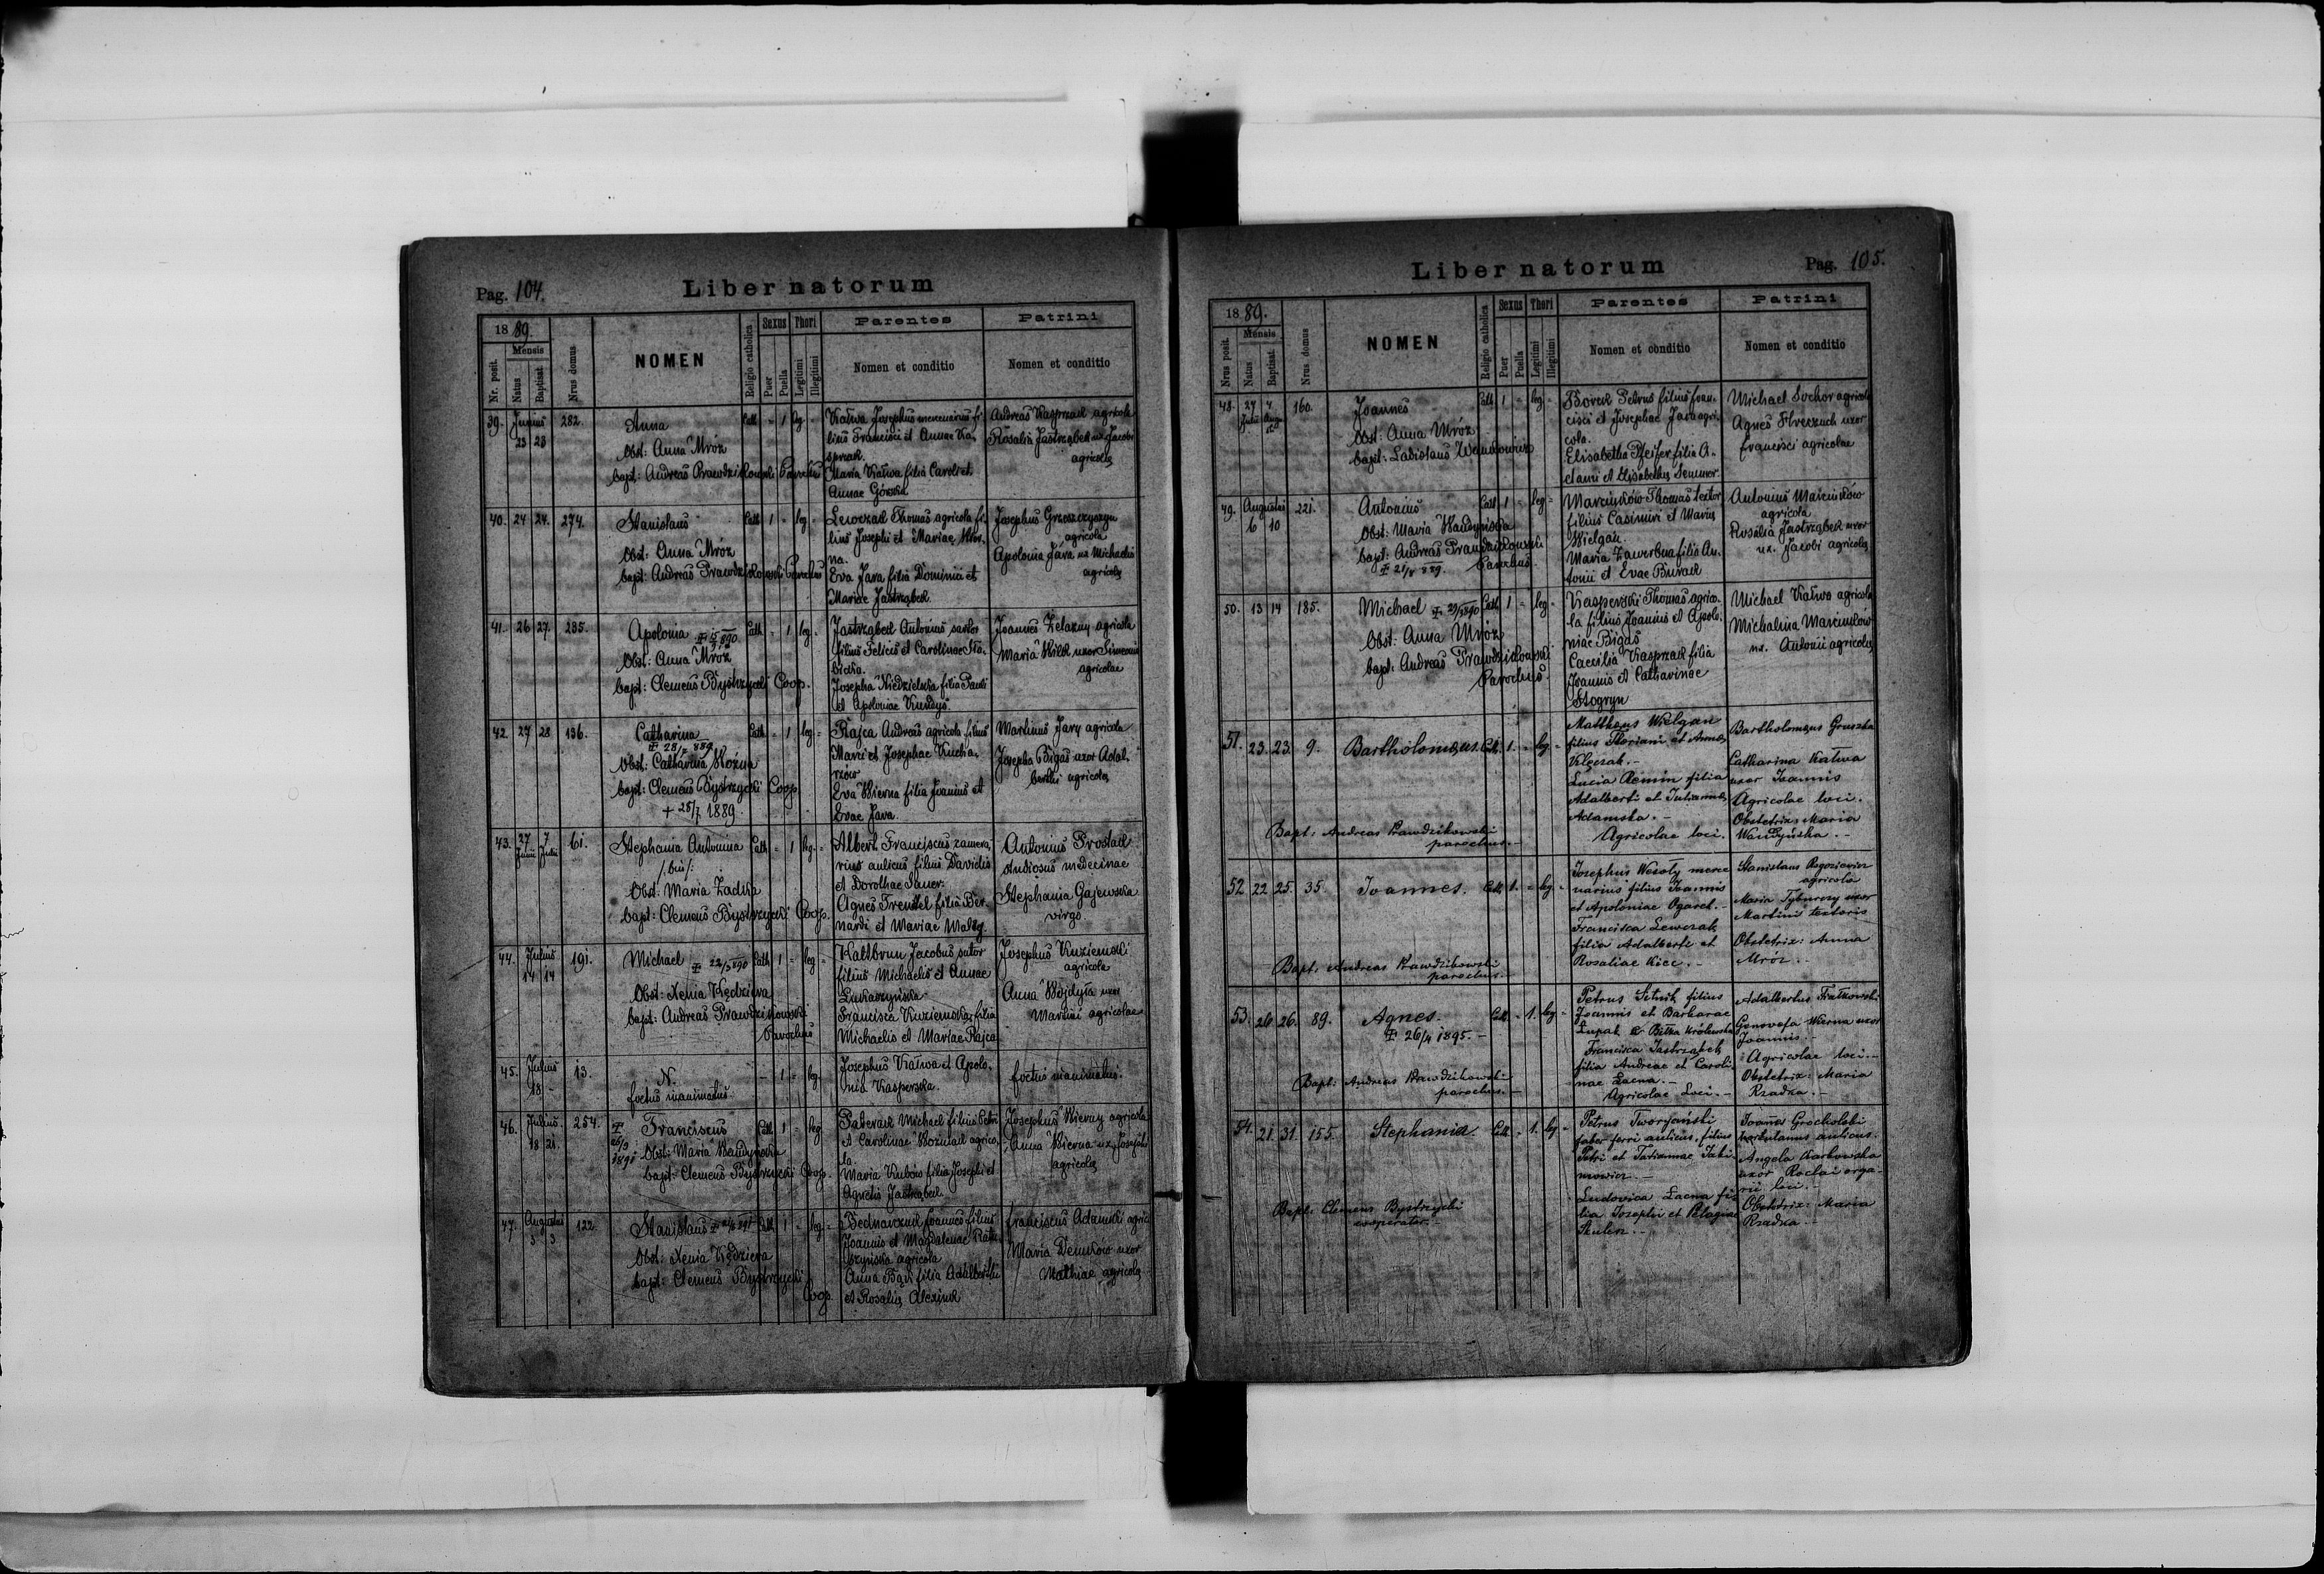 Pag. 104.
Liber natorum
1889.
Nr. posit.
Mensis
Natus
Baptisat
Nrus domus
NOMEN
Religio catholica
Sexus
Puer
Puella
Thori
Legitimi
Illegitimi
Parentes
Nomen et conditio
Patrini
Nomen et conditio
39. Junius 23 23 282. Anna Cath - 1 leg -
Obst: Anna Mróz
bapt: Andreas Prawdzikowski Parochus
Katwa Josephus mercenarius fi-
lius Francisci et Annae Ka-
sprzak.
Maria Katwa filia Caroli et
Annae Górska
Andreas Kasprzak agricola
Rosalia Jastrząbek ux. Jacobi
agricolae
40. 24 24. 274. Stanislaus Cath 1 - leg -
Obst: Anna Mróz
bapt: Andreas Prawdzikowski Parochus
Lewczak Thomas agricola fi-
lius Josephi et Mariae
na.
Eva Jara filia Dominici et
Mariae Jastrząbek.
Josephus Grzeszczyszyn
agricola
Apolonia Jara ux Michaelis
agricolae
41. 26 27. 235. Apolonia Cath - 1 leg -
Obst: Anna Mróz
bapt: Clemens Bystrzycki Coop.
Jastrząbek Antonius sartor
filius Felicis et Carolinae
Josepha Niedzielska filia Pauli
et Apoloniae Kundys.
Joannes Żelazny agricola
Maria Wilk uxor Simeonis
agricolae
42 27 28 136. Catharina Cath - 1 leg -
‡ 28/7 889
Obst: Catharina Woźna
bapt: Clemens Bystrzycki Coop.
+ 28/7 1889.
Rajca Andreas agricola filius
Marci et Josephae Kucha-
rzów
Eva Wierna filia Joannis et
Evae Jara.
Martinus Jary agricola
Josepha Bigas uxor Adal-
berthi agricolae
43. 27 Junii 7 Julii 61. Stephania Antonina Cath - 1 leg. -
/bin/:
Obst: Maria Zadka
bapt: Clemens Bystrzycki Coop.
Albert Franciscus camera-
rius aulicus filius Davidis
et Dorothae Sauer.
Agnes Trenkel filia Ber-
nardi et Mariae Malzy.
Antonius Prostak
studiosus medecinae
Stephania Gajewska
virgo
44. Julius 14 14 191. Michael ‡ 22/3 890 Cath 1 - leg -
Obst: Xenia Kędziera
bapt: Andreas Prawdzikowski
Parochus
Kaltbrun Jacobus sutor
filius Michaelis et Annae
Łukaszyńska
Francisca Kuziemska filia
Michaelis et Mariae Rajca
Josephus Kuziemski
agricola
Anna Wojdyła uxor
Martini agricolae
45. Julius 18 - 13. N. - 1 - leg
foetus inanimatus
Josephus Katwa et Apolo-
nia Kasperska.
foetus inanimatus.
46. Julius. 18 21. 254. ‡ 26/9 1891 Franciscus Cath 1 - leg
Obst: Maria Wandyńska
bapt: Clemens Bystrzycki Coop.
Paterak Michael filius Petri
et Carolinae Woźniak agrico-
la.
Maria Kubów filia Josephi et
Agnetis Jastrząbek.
Josephus Wierny agricola
Anna Wierna ux. Josephi
agricolae
47. Augustus 3 3 122. Stanislaus Cath 1 - leg. -
Obst: Xenia Kędziera
bapt: Clemens Bystrzycki
Coop.
Bednarczuk Joannes filius
Joannis et Magdalenae
agricola
Anna Bąk filia Adalberthi
et Rosaliae Olexiuk
Franciscus Adamski agric
Maria Demków uxor
Mathiae agricolae
Liber natorum
Pag. 105.
1889.
Nrus posit.
Mensis
Natus
Baptisat
Nrus domus
NOMEN
Religio catholica
Sexus
Puer
Puella
Thori
Legitimi
Illegitimi
Parentes
Nomen et conditio
Patrini
Nomen et conditio
48. 27 Julii 4 Aug. 160. Joannes Cath 1 - leg -
Obst: Anna Mróz
bapt: Ladislaus
Borek Petrus filius Fran-
cisci et Josephae Jara agri-
cola.
Elisabetha Pfeifer filia A-
dami et Elisabethae Semmer.
Michael Sochor agricola
Agnes Hreczuch uxor
Francisci agricolae
49. Augustus 6 10 221. Antonius Cath 1 - leg -
Obst: Maria Wandyńska
bapt: Andreas Prawdzikowski
‡ 21/8 889. Parochus.
Marcinków Thomas textor
filius Casimiri et Mariae
Wielgan.
Maria Zawerbna filia An-
tonii et Evae Burak
Antonius Marcinków
agricola
Rosalia Jastrząbek uxor
ux. Jacobi agricolae
50. 13 14 185. Michael Cath 1 - leg -
Obst: Anna Mróz
bapt: Andreas Prawdzikowski
Parochus.
Kasperski Thomas agrico-
la filius Joannis et Apolo-
niae Bigas
Caecilia Kasprzak filia
Joannis et Catharinae
Stogryn
Michael Katwa agricola
Michalina Marcinków
ux. Antonii agricolae
51. 23. 23. 9. Bartholomaeus. Cath. 1. - leg -
Bapt: Andreas Prawdzikowski
parochus. -
Mathaeus Wielgan
filius Floriani et Annae
Klęczak. -
Lucia Remin filia
Adalberti et Julianae
Adamska. -
Agricolae loci.
Bartholomaeus Gruszka
Catharina Katwa
uxor Joannis
Agricolae loci.
Obstetrix: Maria
Wandyńska. -
52. 22 25. 35. Joannes. Cath. 1. - leg -
Bapt: Andreas Prawdzikowski
parochus. -
Josephus Wesoły merce
narius filius Joannis
et Apoloniae Ogarek. -
Francisca Lewczak
filia Adalberti et
Rosaliae Kicc. -
Stanislaus Rogoziewicz
agricola
Maria Tyburczy uxor
Martini textoris
Obstetrix: Anna
Mróz. -
53. 26 26. 89. Agnes. Cath. - 1. leg -
‡ 26/4 1895. -
Bapt: Andreas Prawdzikowski
parochus. -
Petrus Sitnik filius
Joannis et Barbarae
Łupak ex Biłka królewska
Francisca Jastrząbek
filia Andreae et Caroli-
nae Lacna. -
Agricolae Loci. -
Adalbertus Fiałkowski
Genovefa Wierna uxor
Joannis. -
Agricolae loci. -
Obstetrix: Maria
Rzadka. -
54. 21. 31. 155. Stephania. Cath. - 1. leg -
Bapt: Clemens Bystrzycki
cooperator. -
Petrus Tworjański
faber ferri aulicus, filius
Petri et Tatiannae Jaki-
mowicz. -
Ludovica Lacna fi-
lia Josephi et Pelagiae
Skulen. -
Joannes Grocholski
hortulanus aulicus.
Angela Karkowska
uxor
rii loci. -
Obstetrix: Maria
Rzadka. -